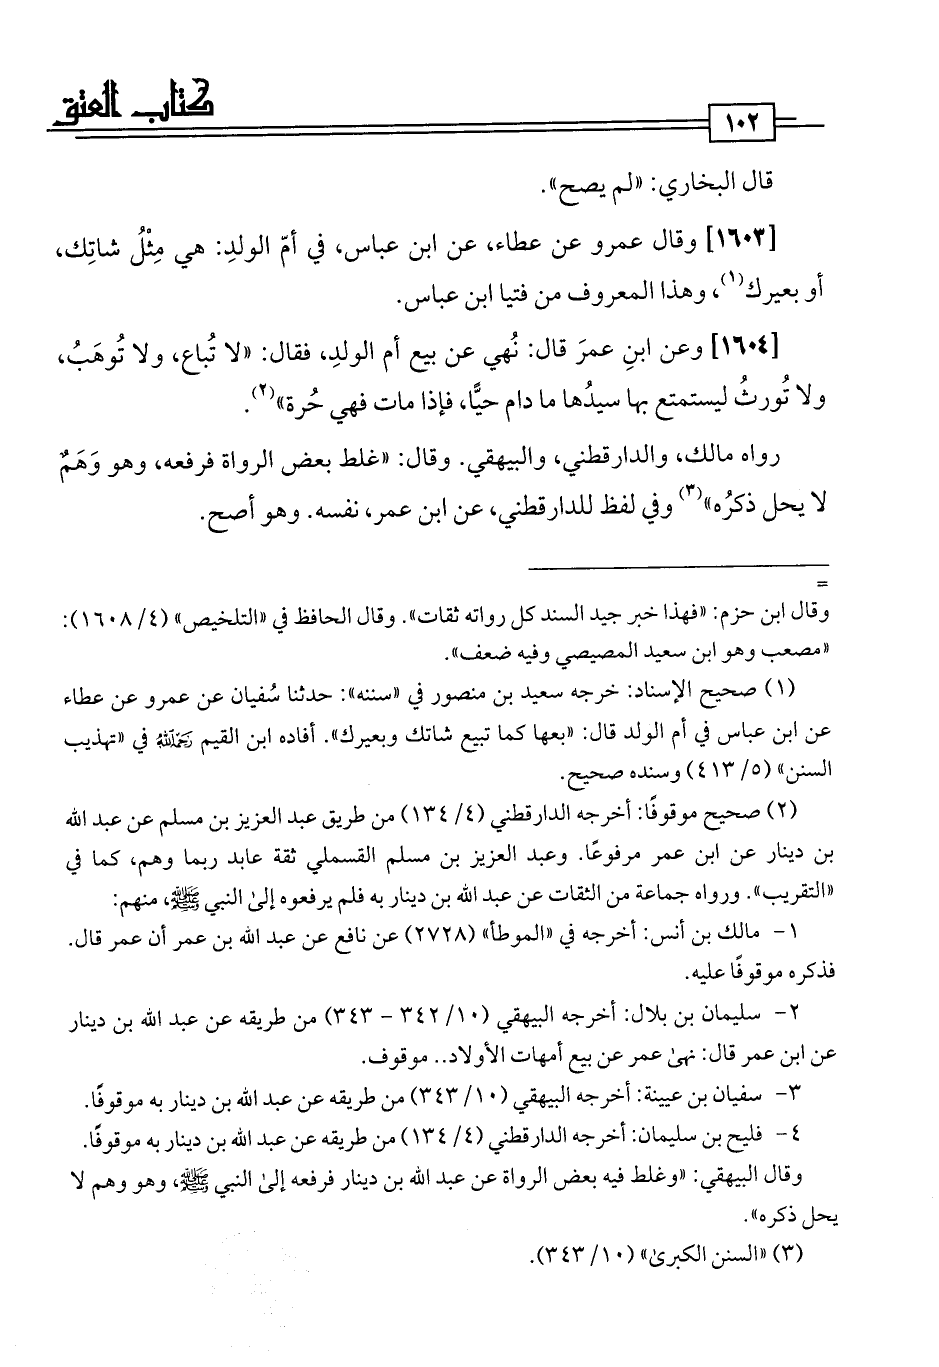 كتاب العتق
١٠٢
قال البخاري: «لم يصح».
[١٦٠٣] وقال عمرو عن عطاء، عن ابن عباس، في أمّ الولدِ: هي مِثْلُ شاتِك،
أو بعيرك(١)، وهذا المعروف من فتيا ابن عباس.
[١٦٠٤] وعن ابنِ عمرَ قال: نُهي عن بيع أم الولدِ، فقال: «لا تُباع، ولا تُوهَبُ،
ولا تُورثُ ليستمتع بها سيدُها ما دام حيًّا، فإذا مات فهي حُرة»(٢).
رواه مالك، والدارقطني، والبيهقي. وقال: «غلط بعض الرواة فرفعه، وهو وَهَمٌ
لا يحل ذكرُه»(٣) وفي لفظ للدارقطني، عن ابن عمر، نفسه. وهو أصح.
=
وقال ابن حزم: «فهذا خبر جيد السند كل رواته ثقات». وقال الحافظ في «التلخيص» (٤/ ١٦٠٨):
«مصعب وهو ابن سعيد المصيصي وفيه ضعف».
(١) صحيح الإسناد: خرجه سعيد بن منصور في «سننه»: حدثنا سُفيان عن عمرو عن عطاء
عن ابن عباس في أم الولد قال: «بعها كما تبيع شاتك وبعيرك». أفاده ابن القيم رَحِمَهُ اللهُ في «تهذيب
السنن» (٥/ ٤١٣) وسنده صحيح.
(٢) صحيح موقوفًا: أخرجه الدارقطني (٤/ ١٣٤) من طريق عبد العزيز بن مسلم عن عبد الله
بن دينار عن ابن عمر مرفوعًا. وعبد العزيز بن مسلم القسملي ثقة عابد ربما وهم، كما في
«التقريب». ورواه جماعة من الثقات عن عبد الله بن دينار به فلم يرفعوه إلىٰ النبي ﷺ، منهم:
١- مالك بن أنس: أخرجه في «الموطأ» (٢٧٢٨) عن نافع عن عبد الله بن عمر أن عمر قال.
فذكره موقوفًا عليه.
٢- سليمان بن بلال: أخرجه البيهقي (١٠/ ٣٤٢ - ٣٤٣) من طريقه عن عبد الله بن دينار
عن ابن عمر قال: نهىٰ عمر عن بيع أمهات الأولاد.. موقوف.
٣- سفيان بن عيينة: أخرجه البيهقي (١٠/ ٣٤٣) من طريقه عن عبد الله بن دينار به موقوفًا.
٤- فليح بن سليمان: أخرجه الدارقطني (٤/ ١٣٤) من طريقه عن عبد الله بن دينار به موقوفًا.
وقال البيهقي: «وغلط فيه بعض الرواة عن عبد الله بن دينار فرفعه إلىٰ النبي ﷺ، وهو وهم لا
يحل ذكره».
(٣) «السنن الكبرىٰ» (١٠/ ٣٤٣).